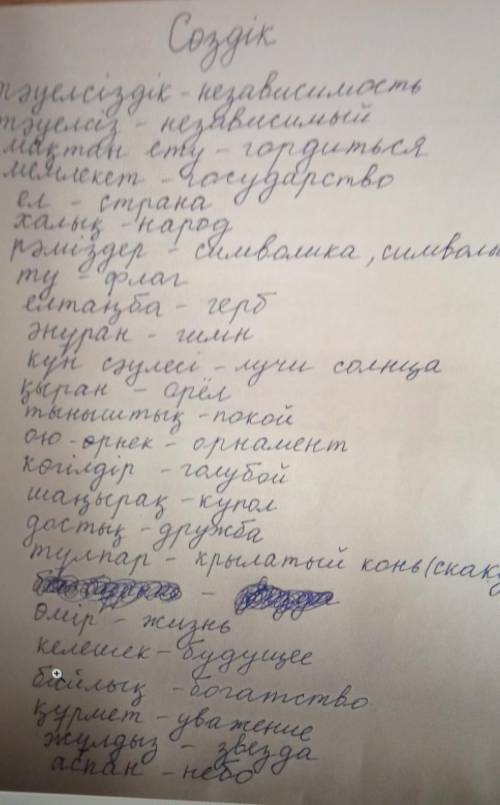 Сөздік
тәуелсіздік - независимость
тәуелсіз - независимый
мақтан ету - гордиться
мемлекет - государство
ел - страна
халық - народ
рәміздер - символика, символы
ту - флаг
елтаңба - герб
әнұран - гимн
күн сәулесі - лучи солнца
қыран - орёл
тыныштық - покой
ою-өрнек - орнамент
көгілдір - голубой
шаңырақ - купол
достық - дружба
тұлпар - крылатый конь (скак
өмір - жизнь
келешек - будущее
байлық - богатство
құрмет - уважение
жұлдыз - звезда
аспан - небо